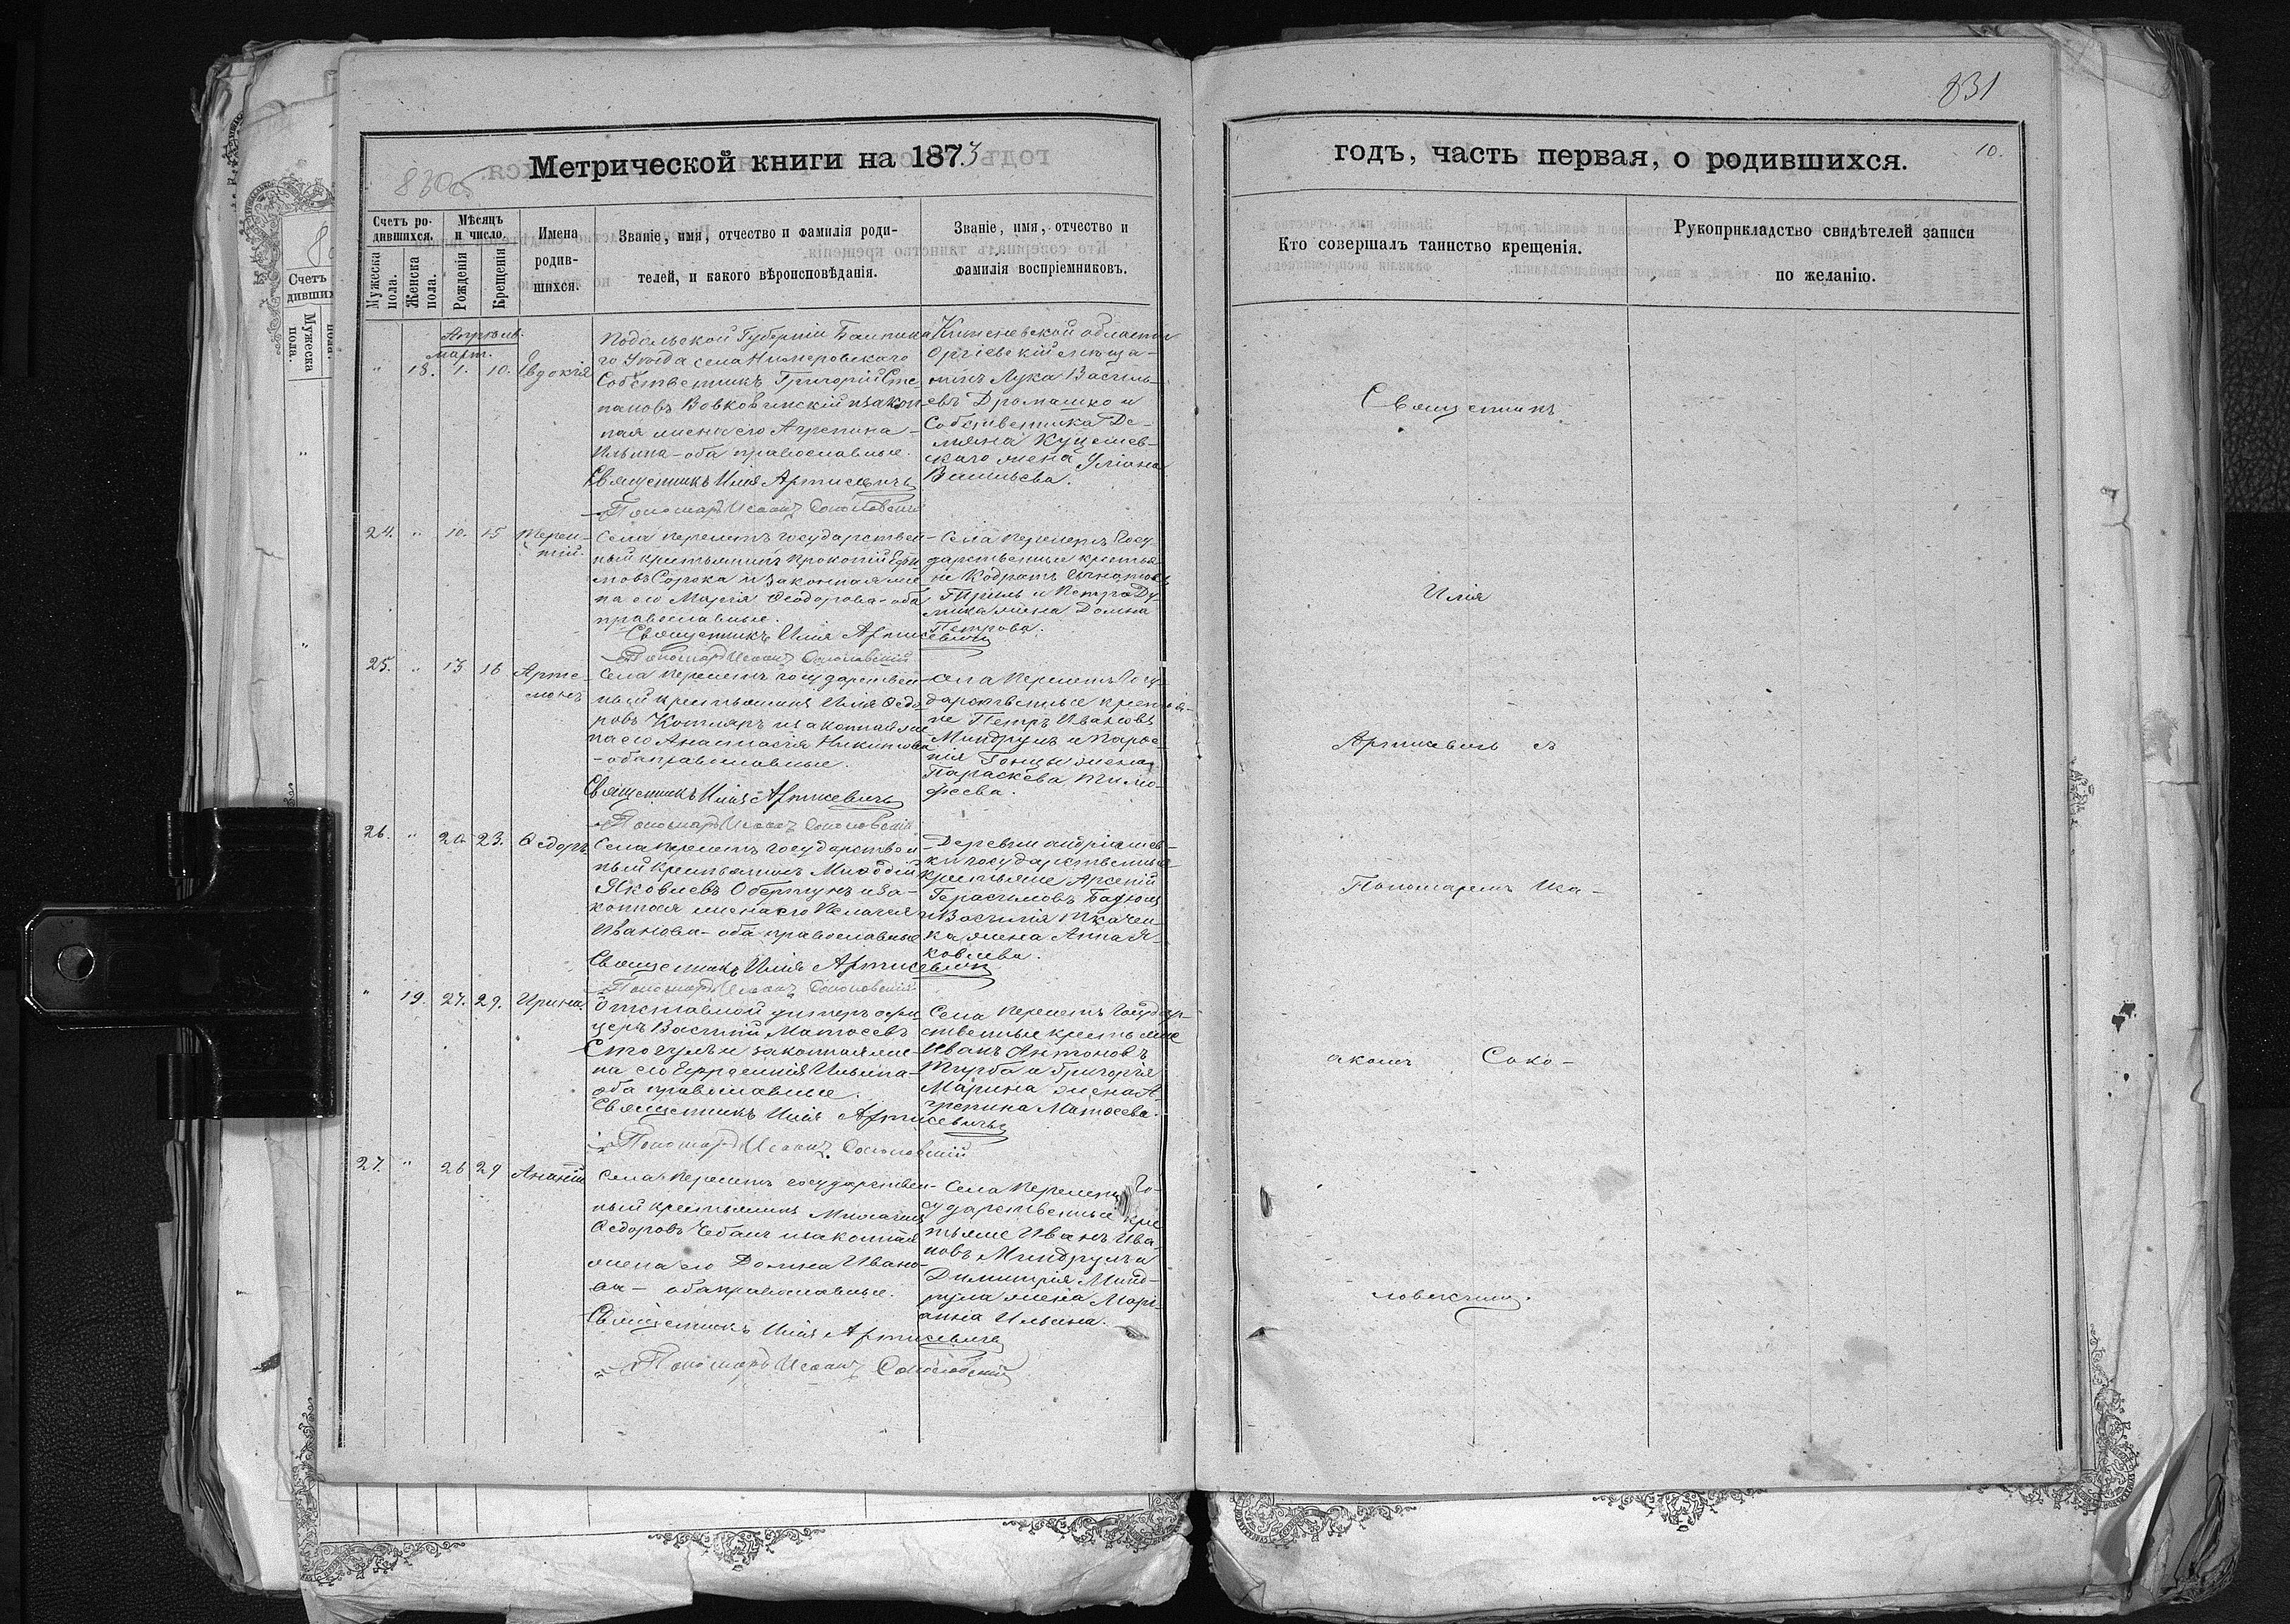 831
Метрической книги на 1873
годъ, часть первая, о родившихся.
10.
830об
Счетъ ро-
дившихся.
Мужеска
пола.
Женска
пола.
Мѣсяцъ
и число.
Рожденія
Крещенія
Имена
родив-
шихся.
Званіе, имя, отчество и фамилія роди-
телей, и какого вѣроисповѣданія.
Званіе, имя, отчество и
фамилія воспріемниковъ.
Кто совершалъ таинство крещенія.
Рукоприкладство свидѣтелей записи
по желанію.
Счетъ
Мужеска
пола.
Апрѣль.
Март.
" 18. 1. 10. Евдокія
Подольской Губерніи
го Уѣзда села
Собственникъ Григорій Сте-
пановъ Вовковинскій и закон-
ная жена его Агрепина
Ильина - оба православные.
Священникъ Илія Артисевичъ
Пономарь Исаакъ Соколовскій
Кишеневской области
Оргіевскій мѣща-
нинъ Лука Василь-
евъ Драмашко и
Собственника Де-
міяна
скаго жена Уліана
Васильева.
24. " 10. 15 Терен-
тій.
Села Перелетъ государствен-
ный крестьянинъ Прокопій Ефи-
мовъ Сорока и законная же-
на его Марія Ѳеодорова - оба
православные.
Священникъ Илія Артисевичъ
Пономарь Исаакъ Соколовскій
Села Перелетъ Госу-
дарственные крестья-
не Кодратъ Игнатовъ
и Петра
жена Домна
Петрова.
25. " 13 16 Арте-
монъ
Села Перелетъ государствен-
ный крестьянинъ Илія Ѳедо-
ровъ Котляръ и законная же-
на его Анастасія Никитова
- оба православные.
Священникъ Илія Артисевичъ
Пономарь Исаакъ Соколовскій
Села Перелетъ Госу-
дарственные крестья-
не Петръ Ивановъ
Миндрулъ и
жена
Параскева Тимо-
феева.
26. " 20 23. Ѳедоръ
Села Перелетъ государствен-
ный крестьянинъ Меѳодій
Яковлевъ Обертунъ и за-
конная жена его Пелагея
Иванова - оба православные
Священникъ Илія Артисевичъ
Пономарь Исаакъ Соколовскій
Деревни Андріяшев-
ки государственные
крестьяне Арсеній
Герасимовъ Бадюлъ
и Василія Ткачен-
ка жена Анна Я-
ковлева.
" 19. 27. 29. Ирина.
Отставной унтеръ офи-
церъ Василій Матѳеевъ
Стогулъ и законная же-
на его Ефросинія Ильина -
оба православные.
Священникъ Илія Артисевичъ
Пономарь Исаакъ Соколовскій
Села Перелетъ Государ-
ственные крестьяне
Иванъ Антоновъ
Турба и Григорія
Марина жена А-
грепина Матѳеева.
27. " 26 29 Ананій
Села Перелетъ государствен-
ный крестьянинъ Михаилъ
Ѳедоровъ Чебанъ и законная
жена его Домна Ивано-
ва - оба православные.
Священникъ Илія Артисевичъ
Пономарь Исаакъ Соколовскій
Села Перелетъ Го-
сударственные кре-
стьяне Иванъ Ива-
новъ Миндрулъ и
Димитрія Минд-
рула жена Мари-
анна Ильина.
Священникъ
Илія
Артисевичъ съ
Пономаремъ Иса-
акомъ Соко-
ловскимъ.